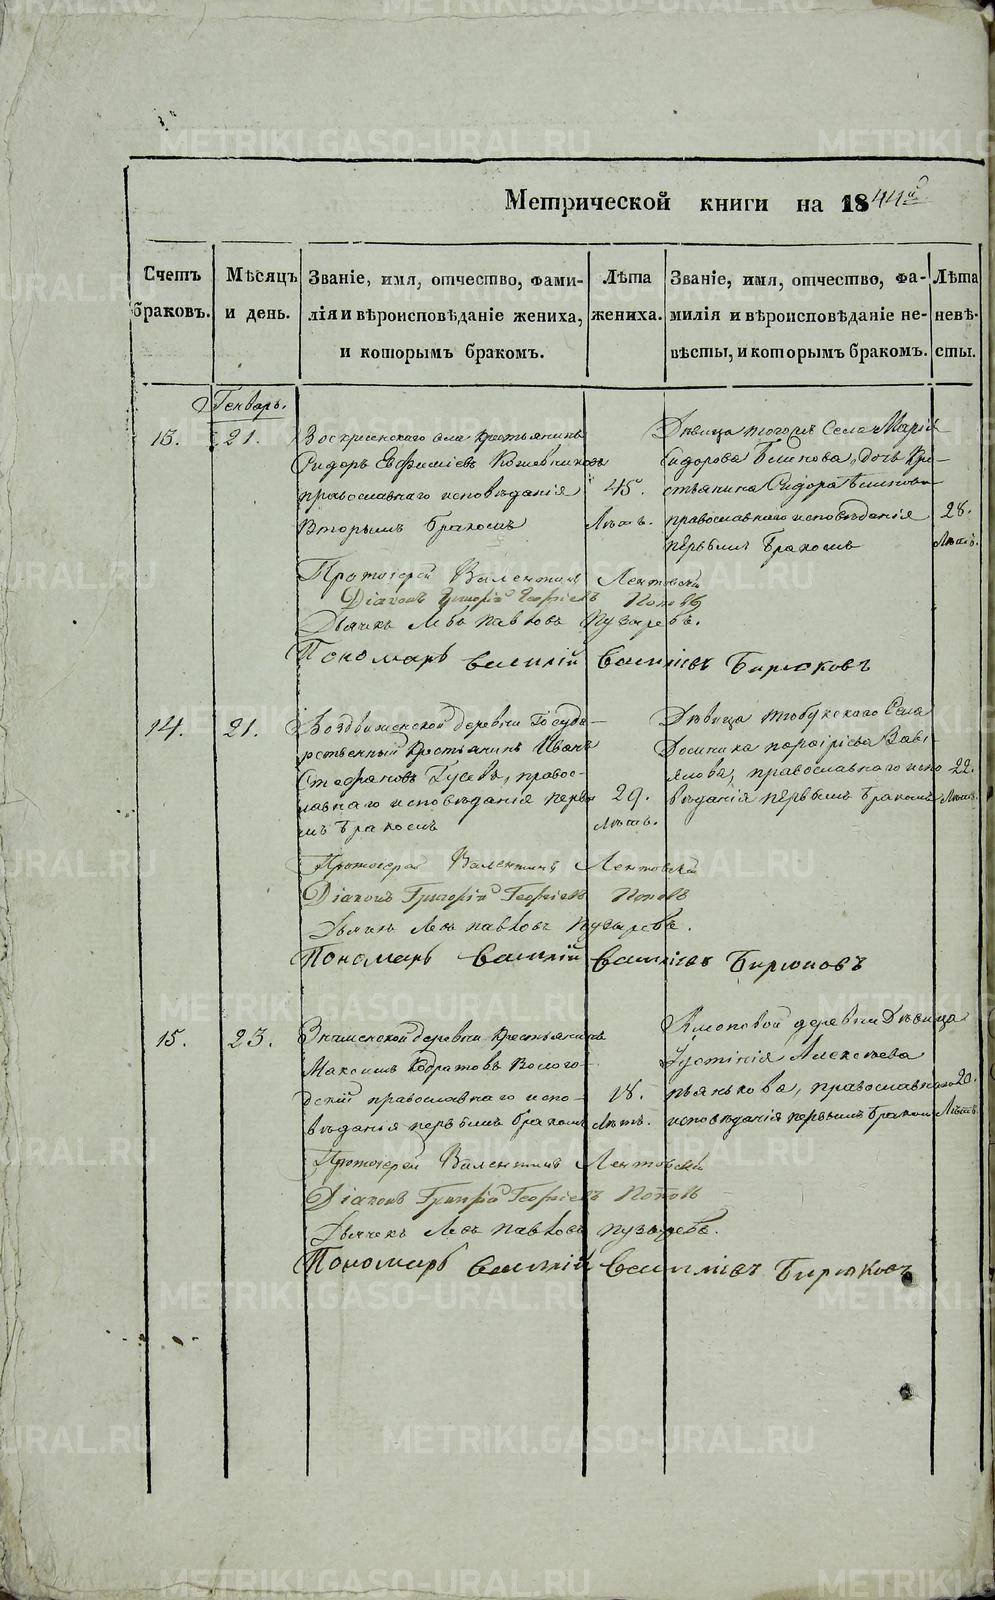 METRIKI.GASO-URAL.RU
Метрической книги на 1844й
Счетъ браковъ.
Мѣсяцъ и день.
Званіе, имя, отчество, фами-
лія и вѣроисповѣданіе жениха,
и которымъ бракомъ.
Лѣта жениха.
Званіе, имя, отчество, фа-
милія и вѣроисповѣданіе не-
вѣсты, и которымъ бракомъ.
Лѣта невѣ-
сты.
Генварь.
13.
21.
Воскрисенскаго села крестьянинъ
Сидоръ Евфиміевъ Кожевниковъ
православнаго исповѣданія
вторымъ бракомъ
45.
Лѣтъ.
Дѣвица тогожъ Села Марія
Сидорова Блинова, дочь Кре-
стьянина Сидора Блинова
православнаго исповѣданія
первымъ бракомъ
28.
Лѣтъ.
Протоіерей Валентинъ Лентовскій
Діаконъ Григорій Георгіевъ Поповъ
Дьячекъ Левъ Павловъ Пузыревъ.
Пономарь Василій Василіевъ Бирюковъ
14.
21.
Воздвиженской деревни Госуда-
рственный Крестьянинъ Иванъ
Стефановъ Гусевъ, правос-
лавнаго исповѣданія первы
мъ бракомъ
29.
Лѣтъ.
Дѣвица Села
Домника Порфиріева Завь-
ялова, православнаго испо
вѣданія первымъ бракомъ
22.
Лѣтъ.
Протоіерей Валентинъ Лентовскій
Діаконъ Григорій Георгіевъ Поповъ
Дьячекъ Левъ Павловъ Пузыревъ.
Пономарь Василій Василіевъ Бирюковъ
15.
23.
Знаменской деревни Крестьянинъ
Максимъ Кодратовъ Волого-
дскій православнаго испо-
вѣданія первымъ бракомъ
18.
Лѣтъ.
деревни Дѣвица
Устинія Алексѣева
Пьянкова, православнаго
исповѣданія первымъ бракомъ
20.
Лѣтъ.
Протоіерей Валентинъ Лентовскій
Діаконъ Григорій Георгіевъ Поповъ
Дьячекъ Левъ Павловъ Пузыревъ.
Пономарь Василій Василіевъ Бирюковъ